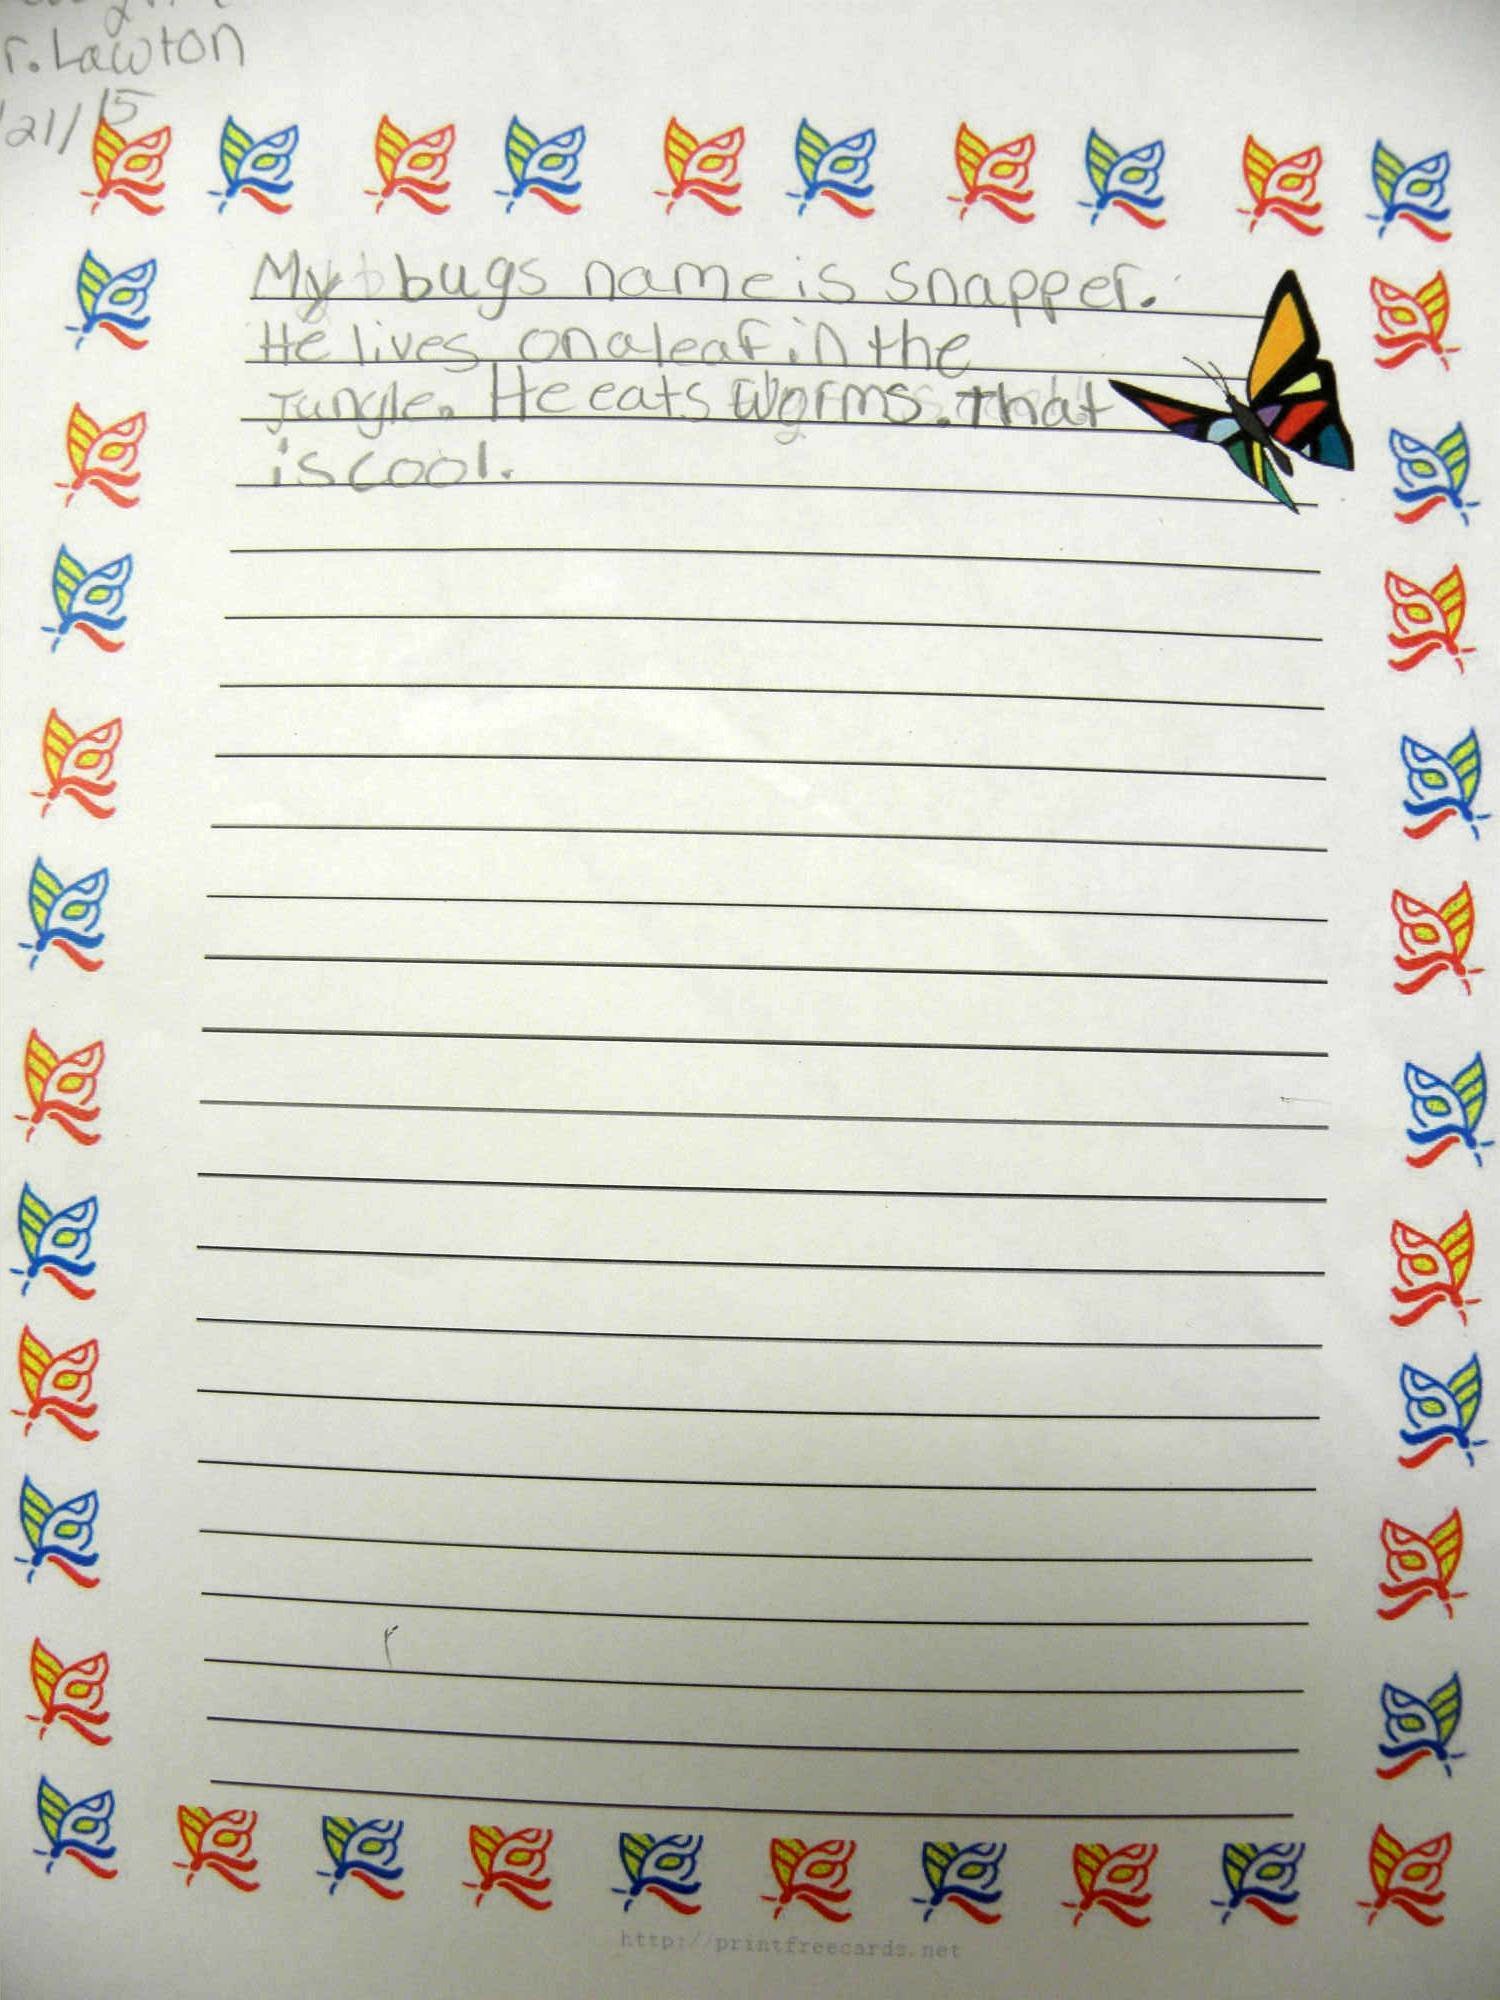 r. Lawton
/21/15
My bugs name is snapper.
He lives on a leaf in the
jungle. He eats worms. That
is cool.
http://printfreecards.net